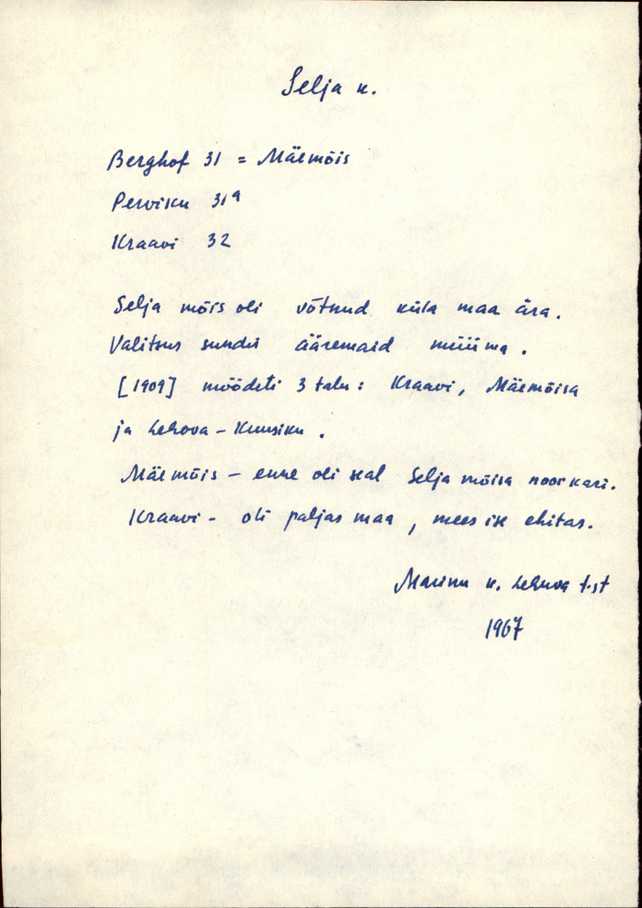 Selja k.
Berghof 31 = Mäemõis
Perviku 31a
Kraavi 32
Selja mõis oli võtnud küla maa ära.
Valitsus sundis ääremaid müüma.
[1909] möödeti 3 talu: Kraavi, Mäemõisa
ja Lehova-Kuusiku.
Mäemõis – enne oli seal Selja mõisa noorkari.
Kraavi - oli paljas maa, mees ise ehitas.
k. Lehova t-st
1967